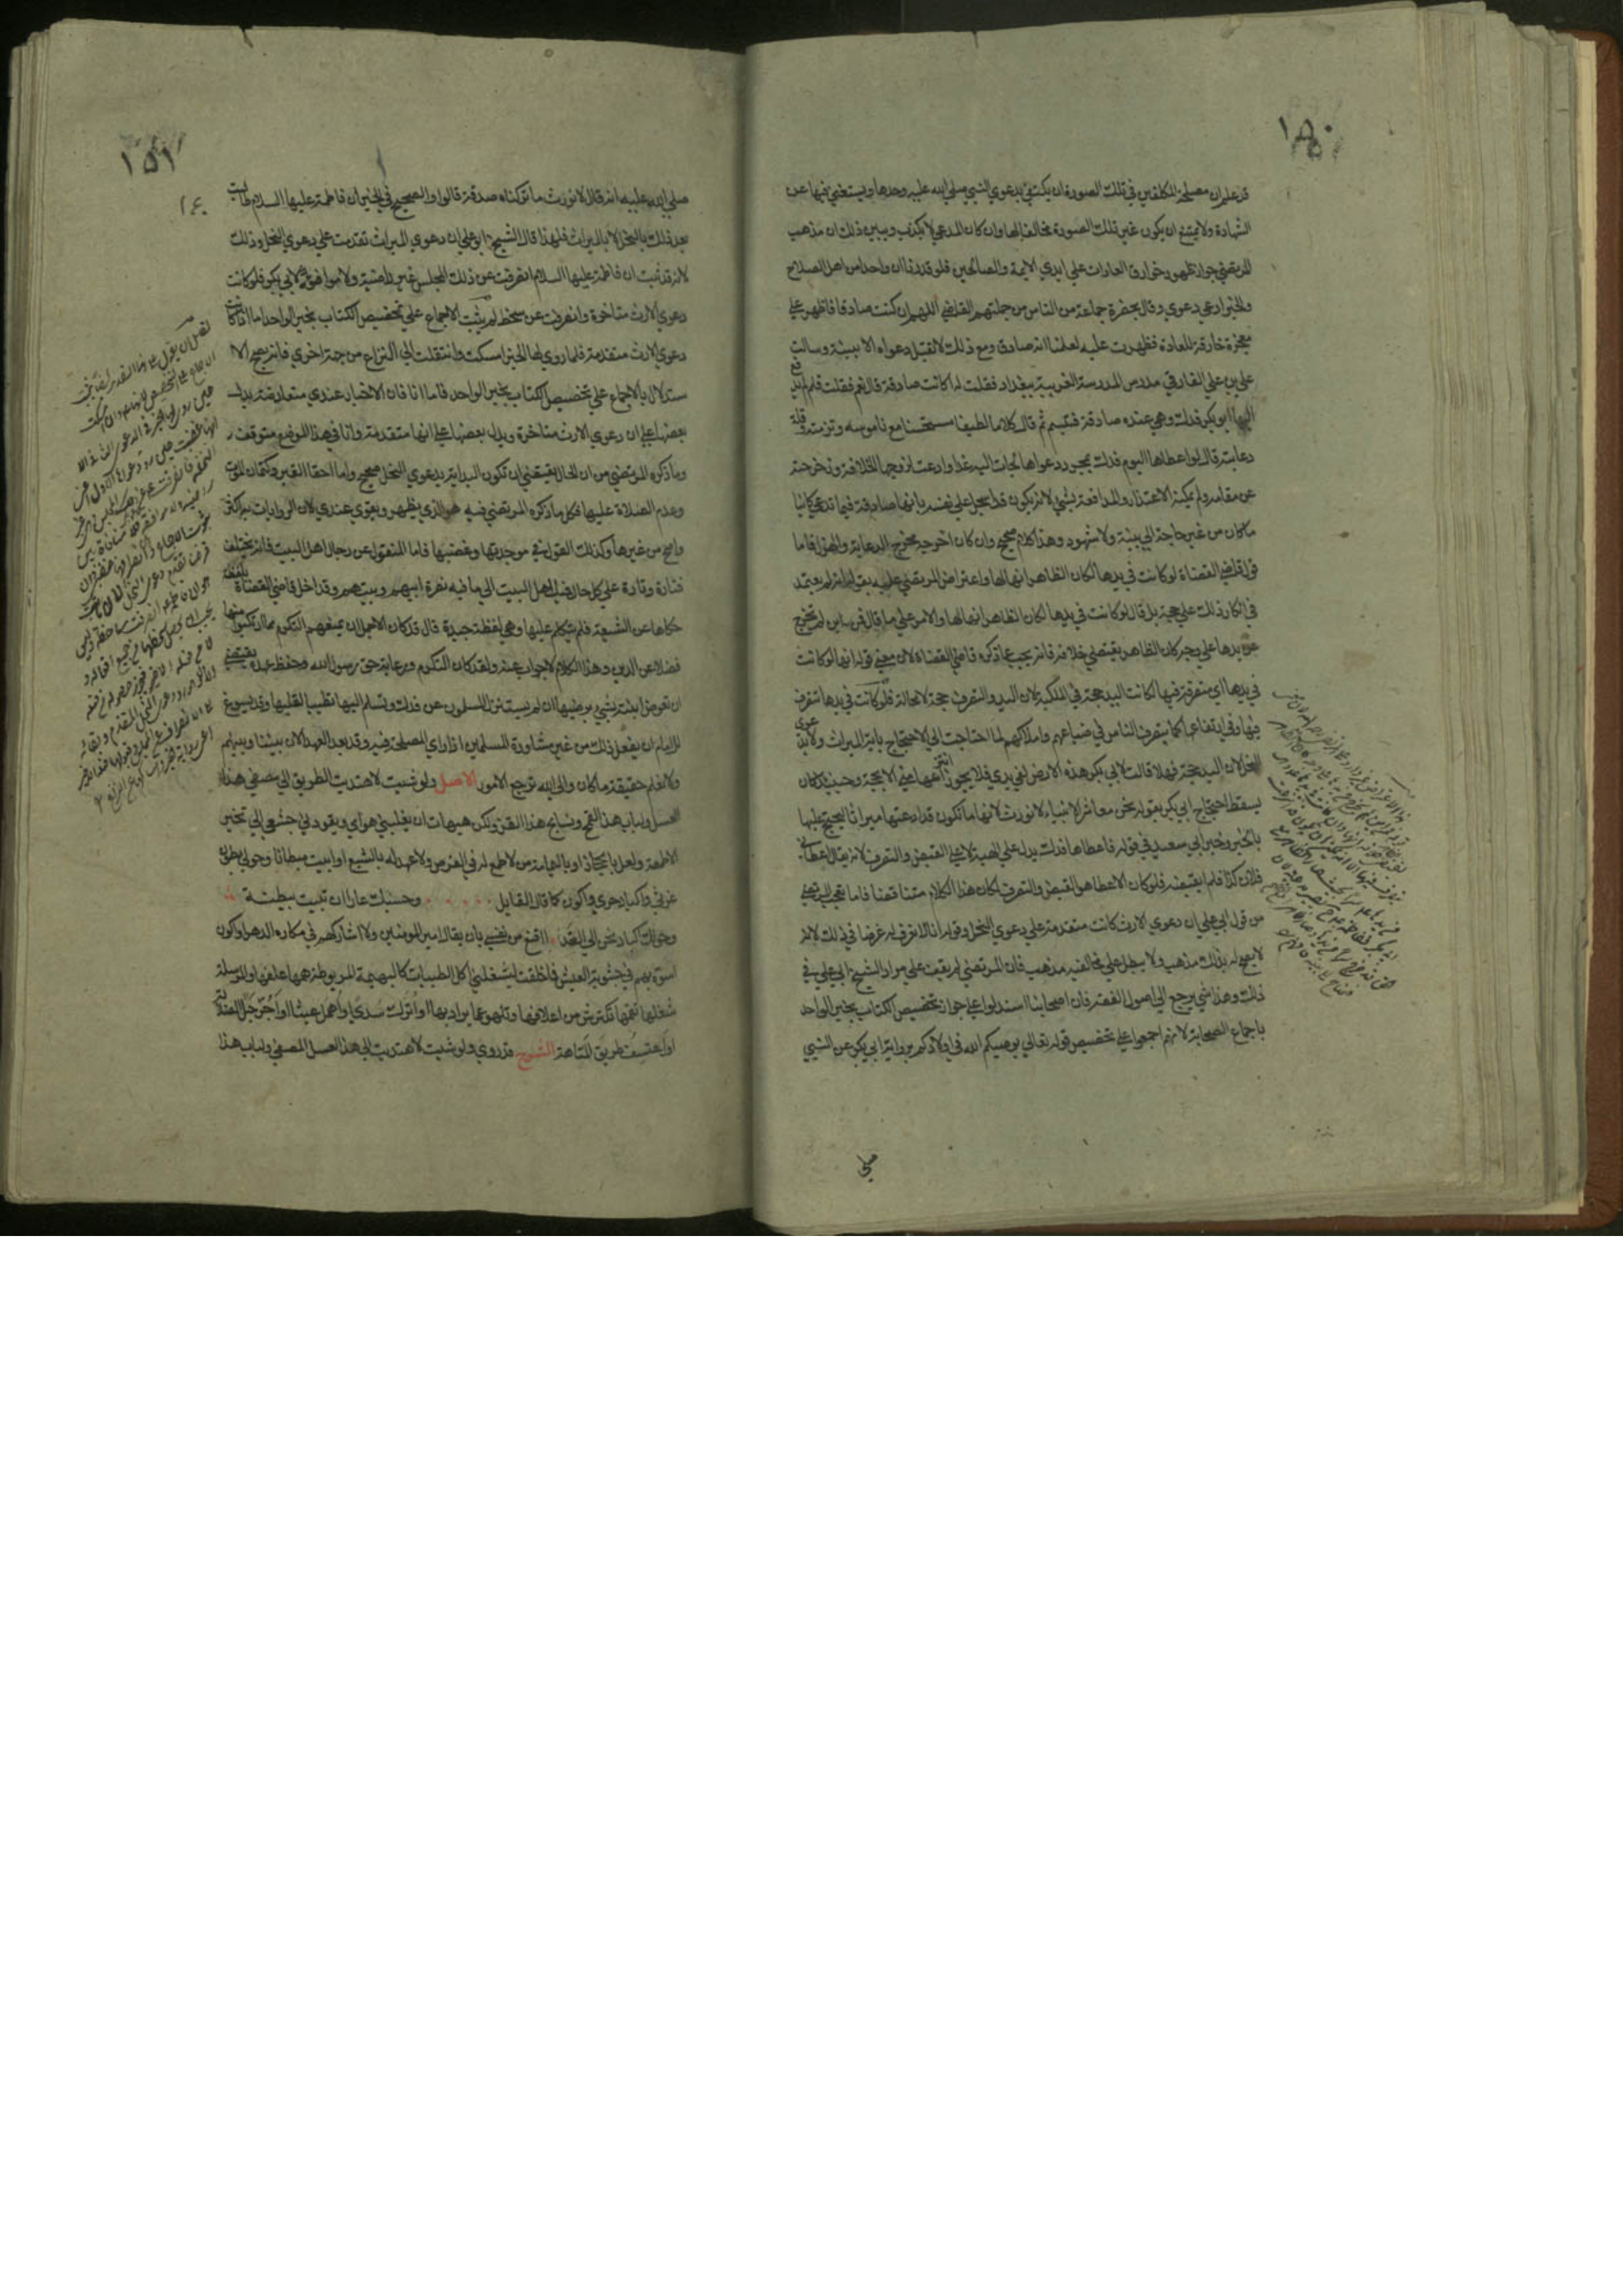 ١٥٠
قد علم ان مصلحة المكلفين في تلك الصورة ان يكتفي بدعوي النبي صلي الله عليه وحدها ويستغني فيها عن
الشهادة ولا يمتنع ان يكون غير تلك الصورة مخالفا لها وان كان المدعي لا يكذب ويبين ذلك ان مذهب
المرتضي جواز ظهور خوارق العادات علي ايدي الايمة والصالحين فلو قدرنا ان واحدا من اهل الصلاح
والخير ادعي دعوي وقال بحضرة جماعة من الناس من جملتهم القاضي اللهم ان كنت صادقا فاظهر علي
معجزة خارقة للعادة فظهرت عليه لعلمنا انه صادق ومع ذلك لا تقبل دعواه الا ببينة وسالت
علي بن علي الفارقي مدرس المدرسة الغربية ببغداد فقلت له اكانت صادقة قال نعم فقلت فلم لم يدفع
اليها ابو بكر فدك وهي عنده صادقة فتبسم ثم قال كلاما لطيفا مستحسنا مع ناموسه وتزمته وقلة
دعابته قال لو اعطاها اليوم فدك بمجرد دعواها لجات اليه غدا وادعت لزوجها الخلافة وزحزحته
عن مقامه ولم يمكنه الاعتذار والمدافعة بشي لانه يكون قد اسجل علي نفسه بانها صادقة فيما تدعي كاينا
ما كان من غير حاجة الي بينة ولا شهود وهذا كلام صحيح وان كان اخرجه مخرج الدعابة والهزل فاما
قول قاضي القضاة لو كانت في يدها لكان الظاهر انها لها واعتراض المرتضي عليه بقوله انه لم يعتمد
في انكار ذلك علي حجة بل قال لو كانت في يدها لكان الظاهر انها لها والامر علي ما قال فمن اين لم تخرج
عن يدها علي وجه كان الظاهر يقتضي خلافه فانه لم يجب عما ذكره قاضي القضاة لان معني قوله انها لو كانت
في يدها اي متصرفة فيها لكانت اليد حجة في الملكية لان اليد والتصرف حجة لا محالة فلو كانت في يدها تتصرف
فيها وفي ارتفاعها كما يتصرف الناس في ضياعهم واملاكهم لما احتاجت الي الاحتجاج باية الميراث ولا بدعوي
النحل لان اليد حجة فهلا قالت لابي بكر هذه الارض في يدي فلا يجوز انتزاعها مني الا بحجة وحينئذ كان
يسقط احتجاج ابي بكر بقوله نحن معاشر الانبياء لا نورث لانها ما تكون قد ادعتها ميراثا ليحتج عليها
بالخبر وخبر ابي سعيد في قوله فاعطاها فدك يدل علي الهبة لا علي القبض والتصرف لانه يقال اعطاني
فلان كذا فلم اقبضه فلو كان الاعطا هو القبض والتصرف لكان هذا الكلام متناقضا فاما تعجب المرتضي
من قول ابي علي ان دعوي الارث كانت متقدمة علي دعوي النحل وقوله انا لا نعرف له غرضا في ذلك لانه
لا يصح له بذلك مذهب ولا يبطل علي مخالفيه مذهب فان المرتضي لم يقف علي مراد الشيخ ابي علي في
ذلك وهذا شي يرجع الي اصول الفقه فان اصحابنا استدلوا علي جواز تخصيص الكتاب بخبر الواحد
باجماع الصحابة لانهم اجمعوا علي تخصيص قوله تعالي يوصيكم الله في اولادكم برواية ابي بكر عن النبي
صلي
١٥١
صلي الله عليه انه قال لا نورث ما تركناه صدقة قالوا والصحيح في الخبر ان فاطمة عليها السلام طالبت
بعد ذلك بالنحل لا بالميراث فلهذا قال الشيخ ابو علي ان دعوي الميراث تقدمت علي دعوي النحل وذلك
لانه قد ثبت ان فاطمة عليها السلام انصرفت عن ذلك المجلس غير راضية ولا موافقة لابي بكر فلو كانت
دعوي الارث متاخرة وانصرفت عن سخط لم يثبت الاجماع علي تخصيص الكتاب بخبر الواحد اما اذا كانت
دعوي الارث متقدمة فلما روي لها الخبر امسكت وانتقلت الي النزاع من جهة اخري فانه يصح الا
ستدلال بالاجماع علي تخصيص الكتاب بخبر الواحد فاما انا فان الاخبار عندي متعارضة يدل
بعضها علي ان دعوي الارث متاخرة ويدل بعضها علي انها متقدمة وانا في هذا الموضع متوقف
وما ذكره المرتضي من ان الحال يقتضي ان تكون البداية بدعوي النحل صحيح واما اخفا القبر وكتمان الموت
وعدم الصلاة عليها فكل ما ذكره المرتضي فيه هو الذي يظهر ويقوي عندي لان الروايات به اكثر
واصح من غيرها وكذلك القول في موجدتها وغضبها فاما المنقول عن رجال اهل البيت فانه يختلف
فتارة وتارة علي كل حال فميل اهل البيت الي ما فيه نصرة ابيهم وبيتهم وقد اخل قاضي القضاة بلفظة
حكاها عن الشيعة فلم يتكلم عليها وهي لفظة جيدة قال قد كان الاجمل ان يمنعهم التكرم مما ارتكبوا منها
فضلا عن الدين وهذا الكلام لا جواب عنه ولقد كان التكرم ورعاية حق رسول الله وحفظ عهده يقتضي
ان تعوض ابنته بشي يرضيها ان لم يستنزل المسلمون عن فدك وتسلم اليها تطييبا لقلبها وقد يسوغ
للامام ان يفعل ذلك من غير مشاورة المسلمين اذا راي المصلحة فيه وقد بعد العهد الان بيننا وبينهم
ولا نعلم حقيقة ما كان والي الله ترجع الامور الاصل ولو شيت لاهتديت الطريق الي مصفي هذا
العسل ولباب هذا القمح ونسايج هذا القز ولكن هيهات ان يغلبني هواي ويقودني جشعي الي تخير
الاطعمة ولعل بالحجاز او باليمامة من لا طمع له في القرص ولا عهد له بالشبع او ابيت مبطانا وحولي بطون
غرثي واكباد حري او اكون كما قال القايل وحسبك عارا ان تبيت ببطنة
وحولك اكباد تحن الي القد ااقنع من نفسي بان يقال امير المومنين ولا اشاركهم في مكاره الدهر او اكون
اسوة لهم في جشوبة العيش فما خلقت ليشغلني اكل الطيبات كالبهيمة المربوطة همها علفها او المرسلة
شغلها تقممها تكترش من اعلافها وتلهو عما يراد بها او اترك سدي او اهمل عابثا او اجر حبل الضلالة
او اعتسف طريق المتاهة الشرح قد روي ولو شيت لاهتديت الي هذا العسل المصفي ولباب هذا